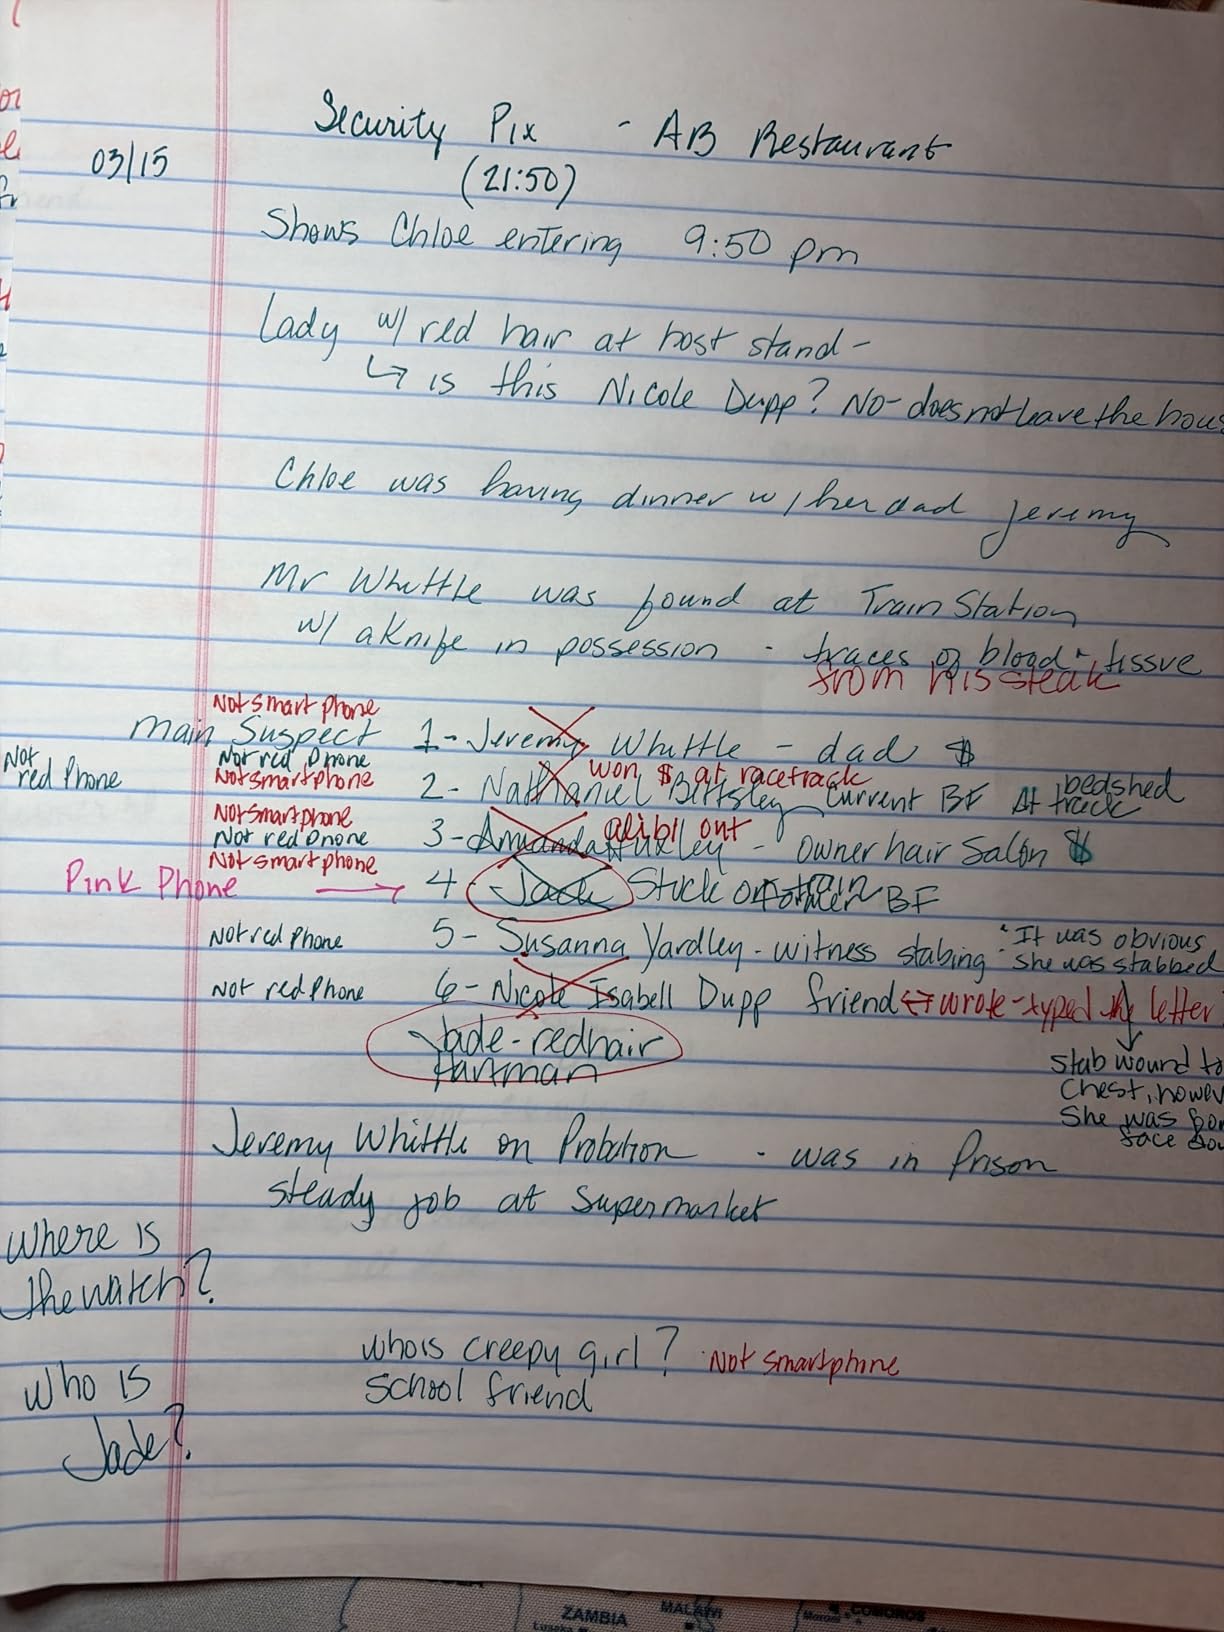 Security Pix - AB Restaurant
03/15 (21:50)
Shows Chloe entering 9:50 pm
Lady w/ red hair at host stand -
↳ is this Nicole Dupp? No - does not leave the hous
Chloe was having dinner w/ her dad Jeremy
Mr Whittle was found at Train Station
w/ a Knife in possession - traces of blood + tissue
from his steak
Not smart phone
Main Suspect 1 - Jeremy Whittle - dad $
Not red phone
won $ at racetrack
Not red Phone
Not smartphone 2 - Nathaniel current BF At track
bedshed
Not smartphone
alibi out
Not red phone 3 - Amanda - owner hair Salon $
Not smartphone
Pink Phone → 4 - Jack Stuck on train BF
Not red Phone 5 - Susanna Yardley - witness stabing "It was obvious
she was stabbed
Not red Phone 6 - Nicole Isabell Dupp friend ↔ wrote - typed letter
Jade - redhair
Hartman
stab wound to
Chest, howev
She was
face
Jeremy Whittle on Probation - was in Prison
steady job at Supermarket
Where is
the watch?
who is creepy girl? Not smartphone
School friend
Who is
Jade?
ZAMBIA
MALAWI
COMOROS
Lusaka
Moroni